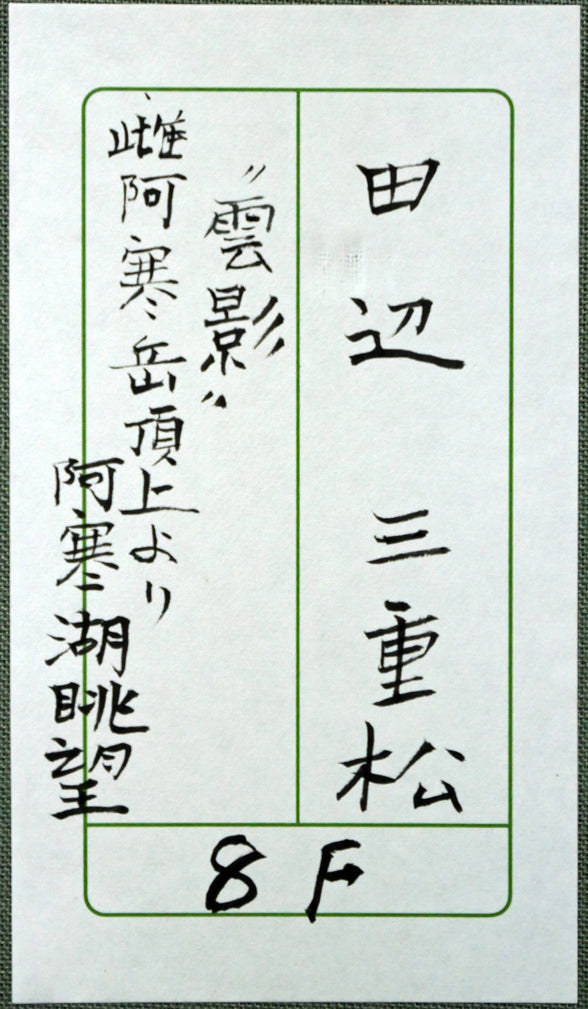 田辺 三重松
"雲影"
雌阿寒岳頂上より
阿寒湖眺望
8F